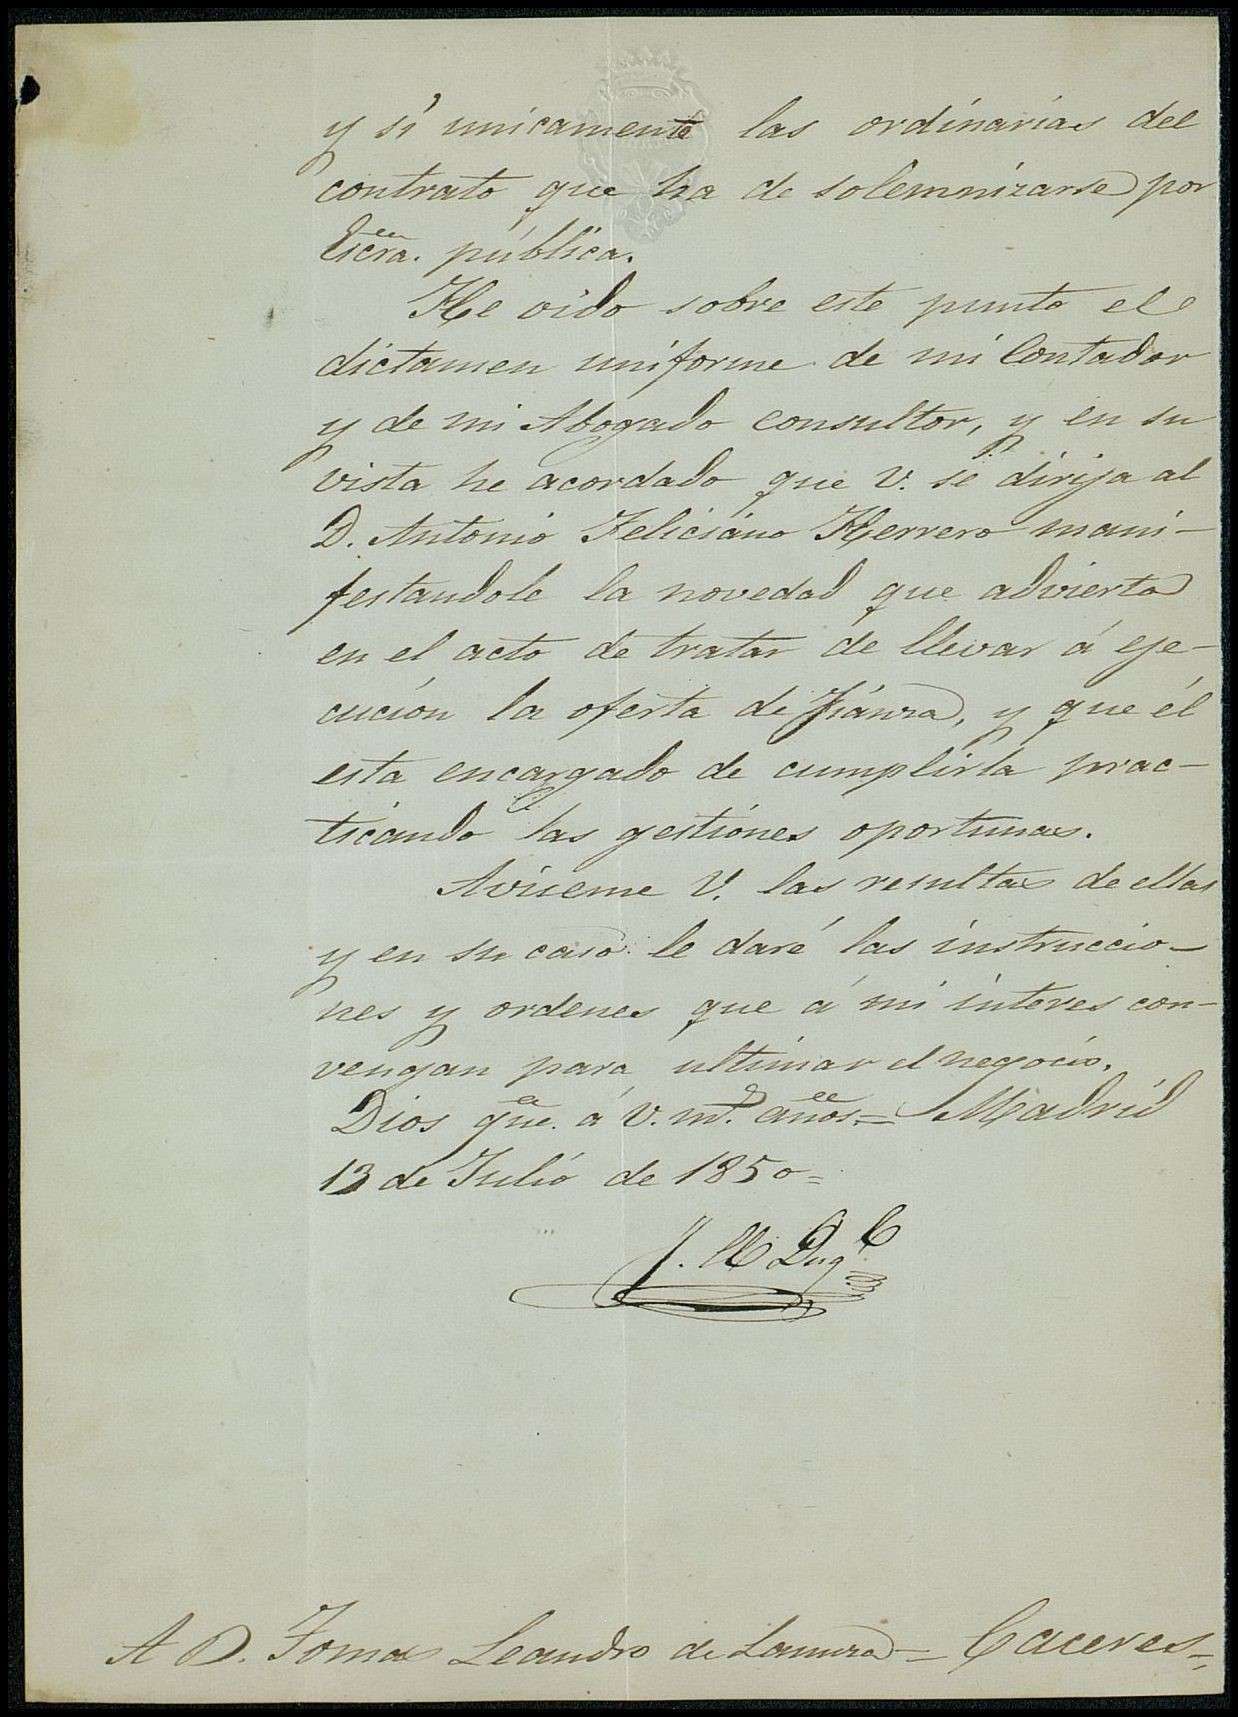 y sí unicamente las ordinarias del
contrato que ha de solemnizarse por
Escra. pública.
He oido sobre este punto el
dictamen uniforme de mi Contador
y de mi Abogado consultor, y en su
vista he acordado que V. se dirija al
D. Antonio Feliciano Herrero mani-
festandole la novedad que advierta
en el acto de tratar de llevar á eje-
cucion la oferta de fianza, y que él
esta encargado de cumplirla prac-
ticando las gestiones oportunas.
Aviseme V. las resultas de ellas
y en su caso le daré las instruccio-
nes y ordenes que á mi interes con-
vengan para ultimar el negocio.
Dios gue. á V. ms. años.= Madrid
13 de Julio de 1850=
A D. Tomas Leandro de = Caceres=